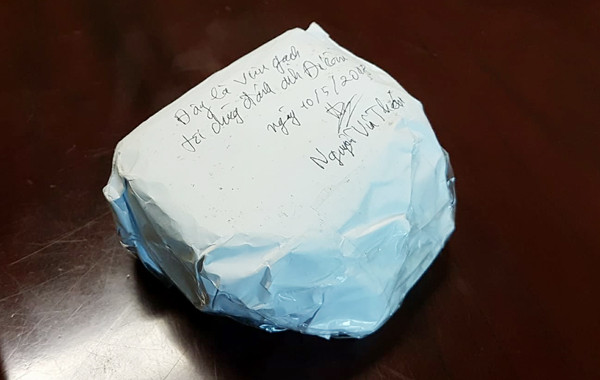 Đây là viên gạch
tôi dùng đánh anh Điền
ngày 10/5/
Nguyễn Vũ Thiên